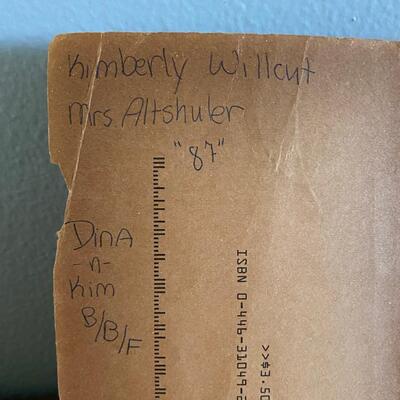 Kimberly Willcut
Mrs. Altshuler
"87"
DinA
-n-
Kim
B/B/F
ISBN 0-446-31049-6
>>$3.50